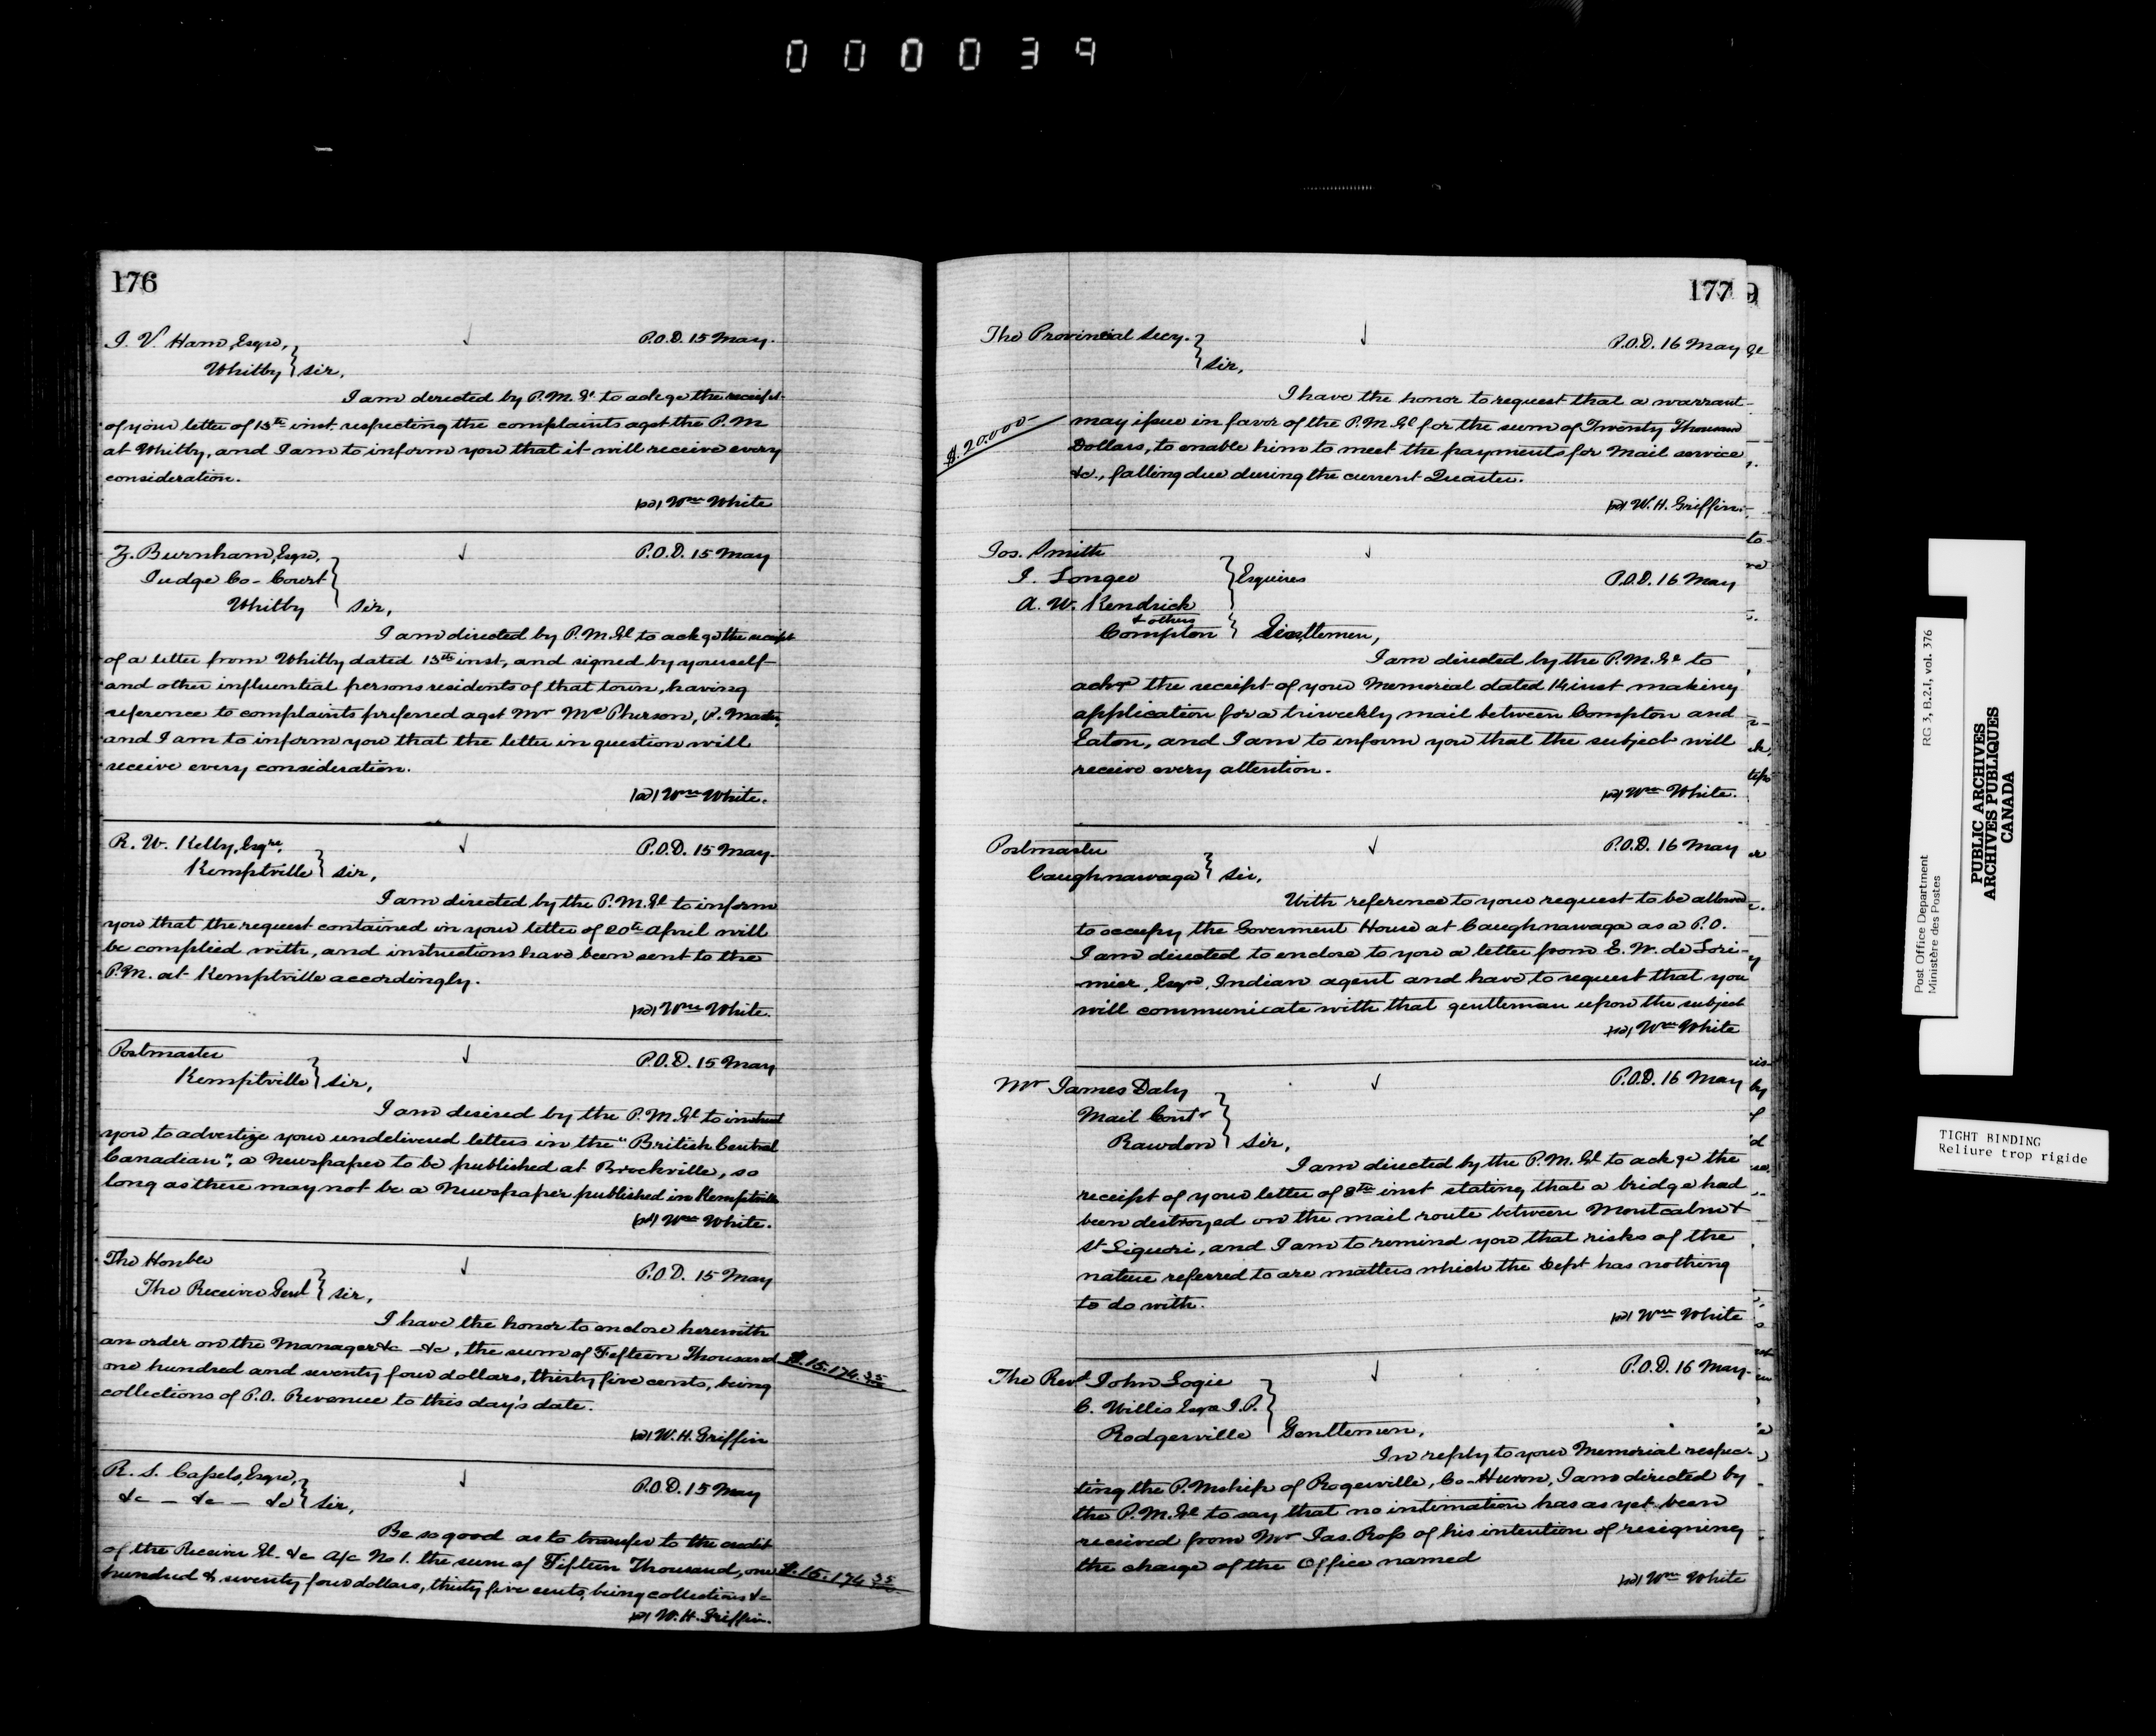 000039
176
J. V. Ham, Esqre,
Whitby } Sir,
P.O.D. 15 May.
I am directed by P.M.Gl. to ackge the receipt
of your letter of 13th inst. respecting the complaints agst the P.M
at Whitby, and I am to inform you that it will receive every
consideration.
(sd) Wm White
Z. Burnham, Esqre,
Judge Co-Court
Whitby } Sir,
P.O.D. 15 May
I am directed by P.M.Gl to ackge the receipt
of a letter from Whitby dated 13th inst, and signed by yourself
and other influential persons residents of that town, having
reference to complaints preferred agst Mr McPherson, P. Master,
and I am to inform you that the letter in question will
receive every consideration.
(sd) Wm White.
R. W. Kelly, Esqre,
Kemptville } Sir,
P.O.D. 15 May.
I am directed by the P.M.Gl to inform
you that the request contained in your letter of 20th April will
be complied with, and instructions have been sent to the
P.M. at Kemptville accordingly.
(sd) Wm White.
Postmaster
Kemptville } Sir,
P.O.D. 15 May
I am desired by the P.M.Gl to instruct
you to advertize your undelivered letters in the "British Central
Canadian", a Newspaper to be published at Brockville, so
long as there may not be a Newspaper published in Kemptville
(sd) Wm White.
The Honble
The Receiver Genl } Sir,
P.O.D. 15 May
I have the honor to enclose herewith
an order on the Manager &c - &c, the sum of Fifteen Thousand $.15.174.35
one hundred and seventy four dollars, thirty five cents, being
collections of P.O. Revenue to this day's date.
(sd) W.H. Griffin
R. S. Cassels, Esqre,
&c - &c - &c } Sir,
P.O.D. 15 May
Be so good as to transfer to the credit
of the Receiver Gl. &c A/c No 1. the sum of Fifteen Thousand, one $.15.174.35
hundred & seventy four dollars, thirty five cents, being collections &c
(sd) W.H. Griffin.
177
The Provincial Secy.
} Sir,
P.O.D. 16 May
I have the honor to request that a warrant
$.20.000- may issue in favor of the P.M.Gl for the sum of Twenty Thousand
Dollars, to enable him to meet the payments for Mail service
&c., falling due during the current Quarter.
(sd) W.H. Griffin.
Jos. Smith
J. Longeo
A. W. Kendrick
& others
Compton } Esquires
Gentlemen,
P.O.D. 16 May
I am directed by the P.M.Gl to
ackge the receipt of your Memorial dated 14 inst making
application for a triweekly mail between Compton and
Eaton, and I am to inform you that the subject will
receive every attention.
(sd) Wm White.
Postmaster
Caughnawaga } Sir,
P.O.D. 16 May
With reference to your request to be allowed
to occupy the Goverment House at Caughnawaga as a P.O.
I am directed to enclose to you a letter from E. W. de Lori-
mier, Esqre, Indian agent and have to request that you
will communicate with that gentleman upon the subject
(sd) Wm White
Mr James Daly
Mail Contr
Rawdon } Sir,
P.O.D. 16 May
I am directed by the P.M.Gl to ackge the
receipt of your letter of 8th inst stating that a bridge had
been destroyed on the mail route between Montcalm &
St Liguori, and I am to remind you that risks of the
nature referred to are matters which the Dept has nothing
to do with.
(sd) Wm White
The Revd John Logie
C. Willis Esqre J.P.
Rodgerville } Gentlemen,
P.O.D. 16 May.
In reply to your Memorial respec-
ting the P.Mship of Rogerville, Co-Huron, I am directed by
the P.M.Gl to say that no intimation has as yet been
received from Mr Jas. Ross of his intention of resigning
the charge of the Office named
(sd) Wm White
Post Office Department
Ministère des Postes
RG 3, B.2.I, vol. 376
PUBLIC ARCHIVES
ARCHIVES PUBLIQUES
CANADA
TIGHT BINDING
Reliure trop rigide